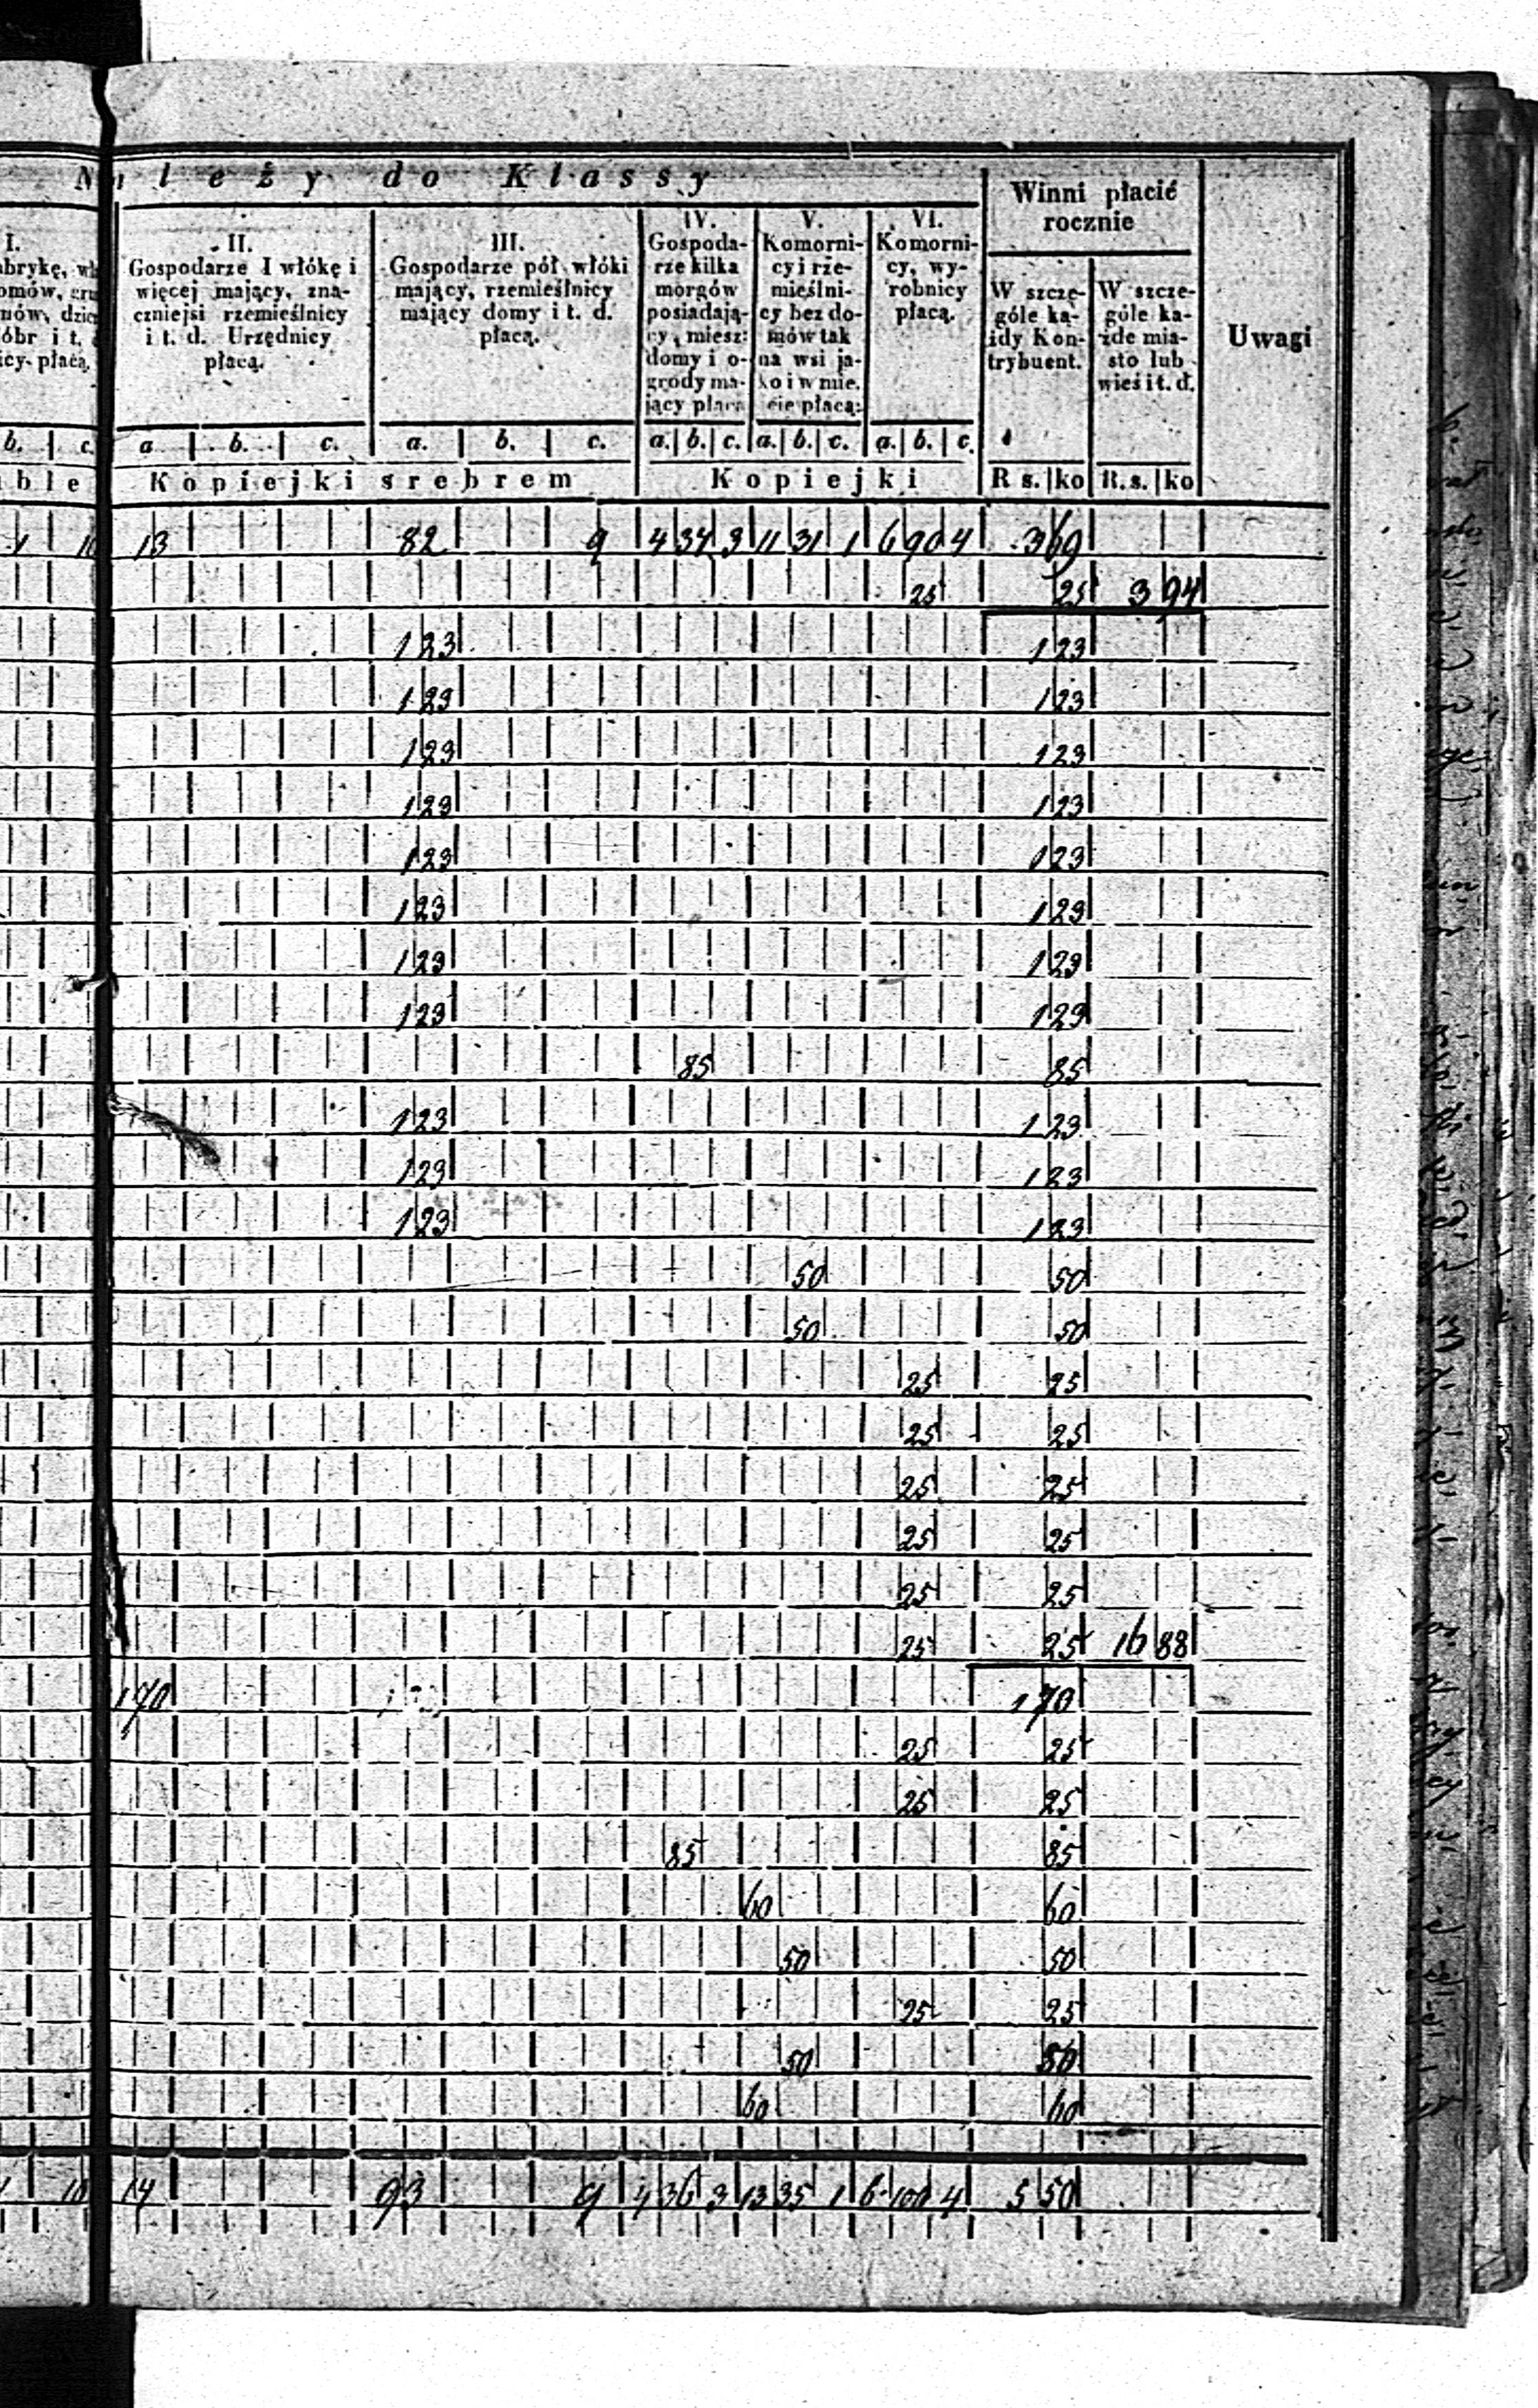 leży do Klassy
Winni płacić
rocznie
I.
II.
Gospodarze I włókę i
więcej mający, zna-
czniejsi rzemieślnicy
i t. d. Urzędnicy
płacą.
III.
Gospodarze pół włóki
mający, rzemieślnicy
mający domy i t. d.
płacą.
IV.
Gospoda-
rze kilka
morgów
posiadają-
cy, miesz:
domy i o-
grody ma-
jący płacą
V.
Komorni-
cy i rze-
mieślni-
cy bez do-
mów tak
na wsi ja-
ko i w mie.
ście płacą:
VI.
Komorni-
cy, wy-
robnicy
płacą.
W szcze-
góle ka-
żdy Kon-
trybuent.
W szcze-
góle ka-
żde mia-
sto lub
wieś i t. d.
Uwagi
b. c. a b. c. a. b. c. a. b. c. a. b. c. a. b. c.
ble Kopiejki srebrem Kopiejki R s. ko R. s. ko
1 10 13 82 9 4 34 3 11 31 1 6 90 4 3 69
25 25 3 94
1 23 1 23
1 23 1 23
1 23 1 23
1 23 1 23
1 23 1 23
1 23 1 23
1 23 1 23
1 23 1 23
85 85
1 23 1 23
1 23 1 23
1 23 1 23
50 50
50 50
25 25
25 25
25 25
25 25
25 25
25 25 16 88
170 1 70
25 25
25 25
85 85
60 60
50 50
25 25
50 50
60 60
10 14 93 9 4 36 3 13 35 1 6 100 4 5 50